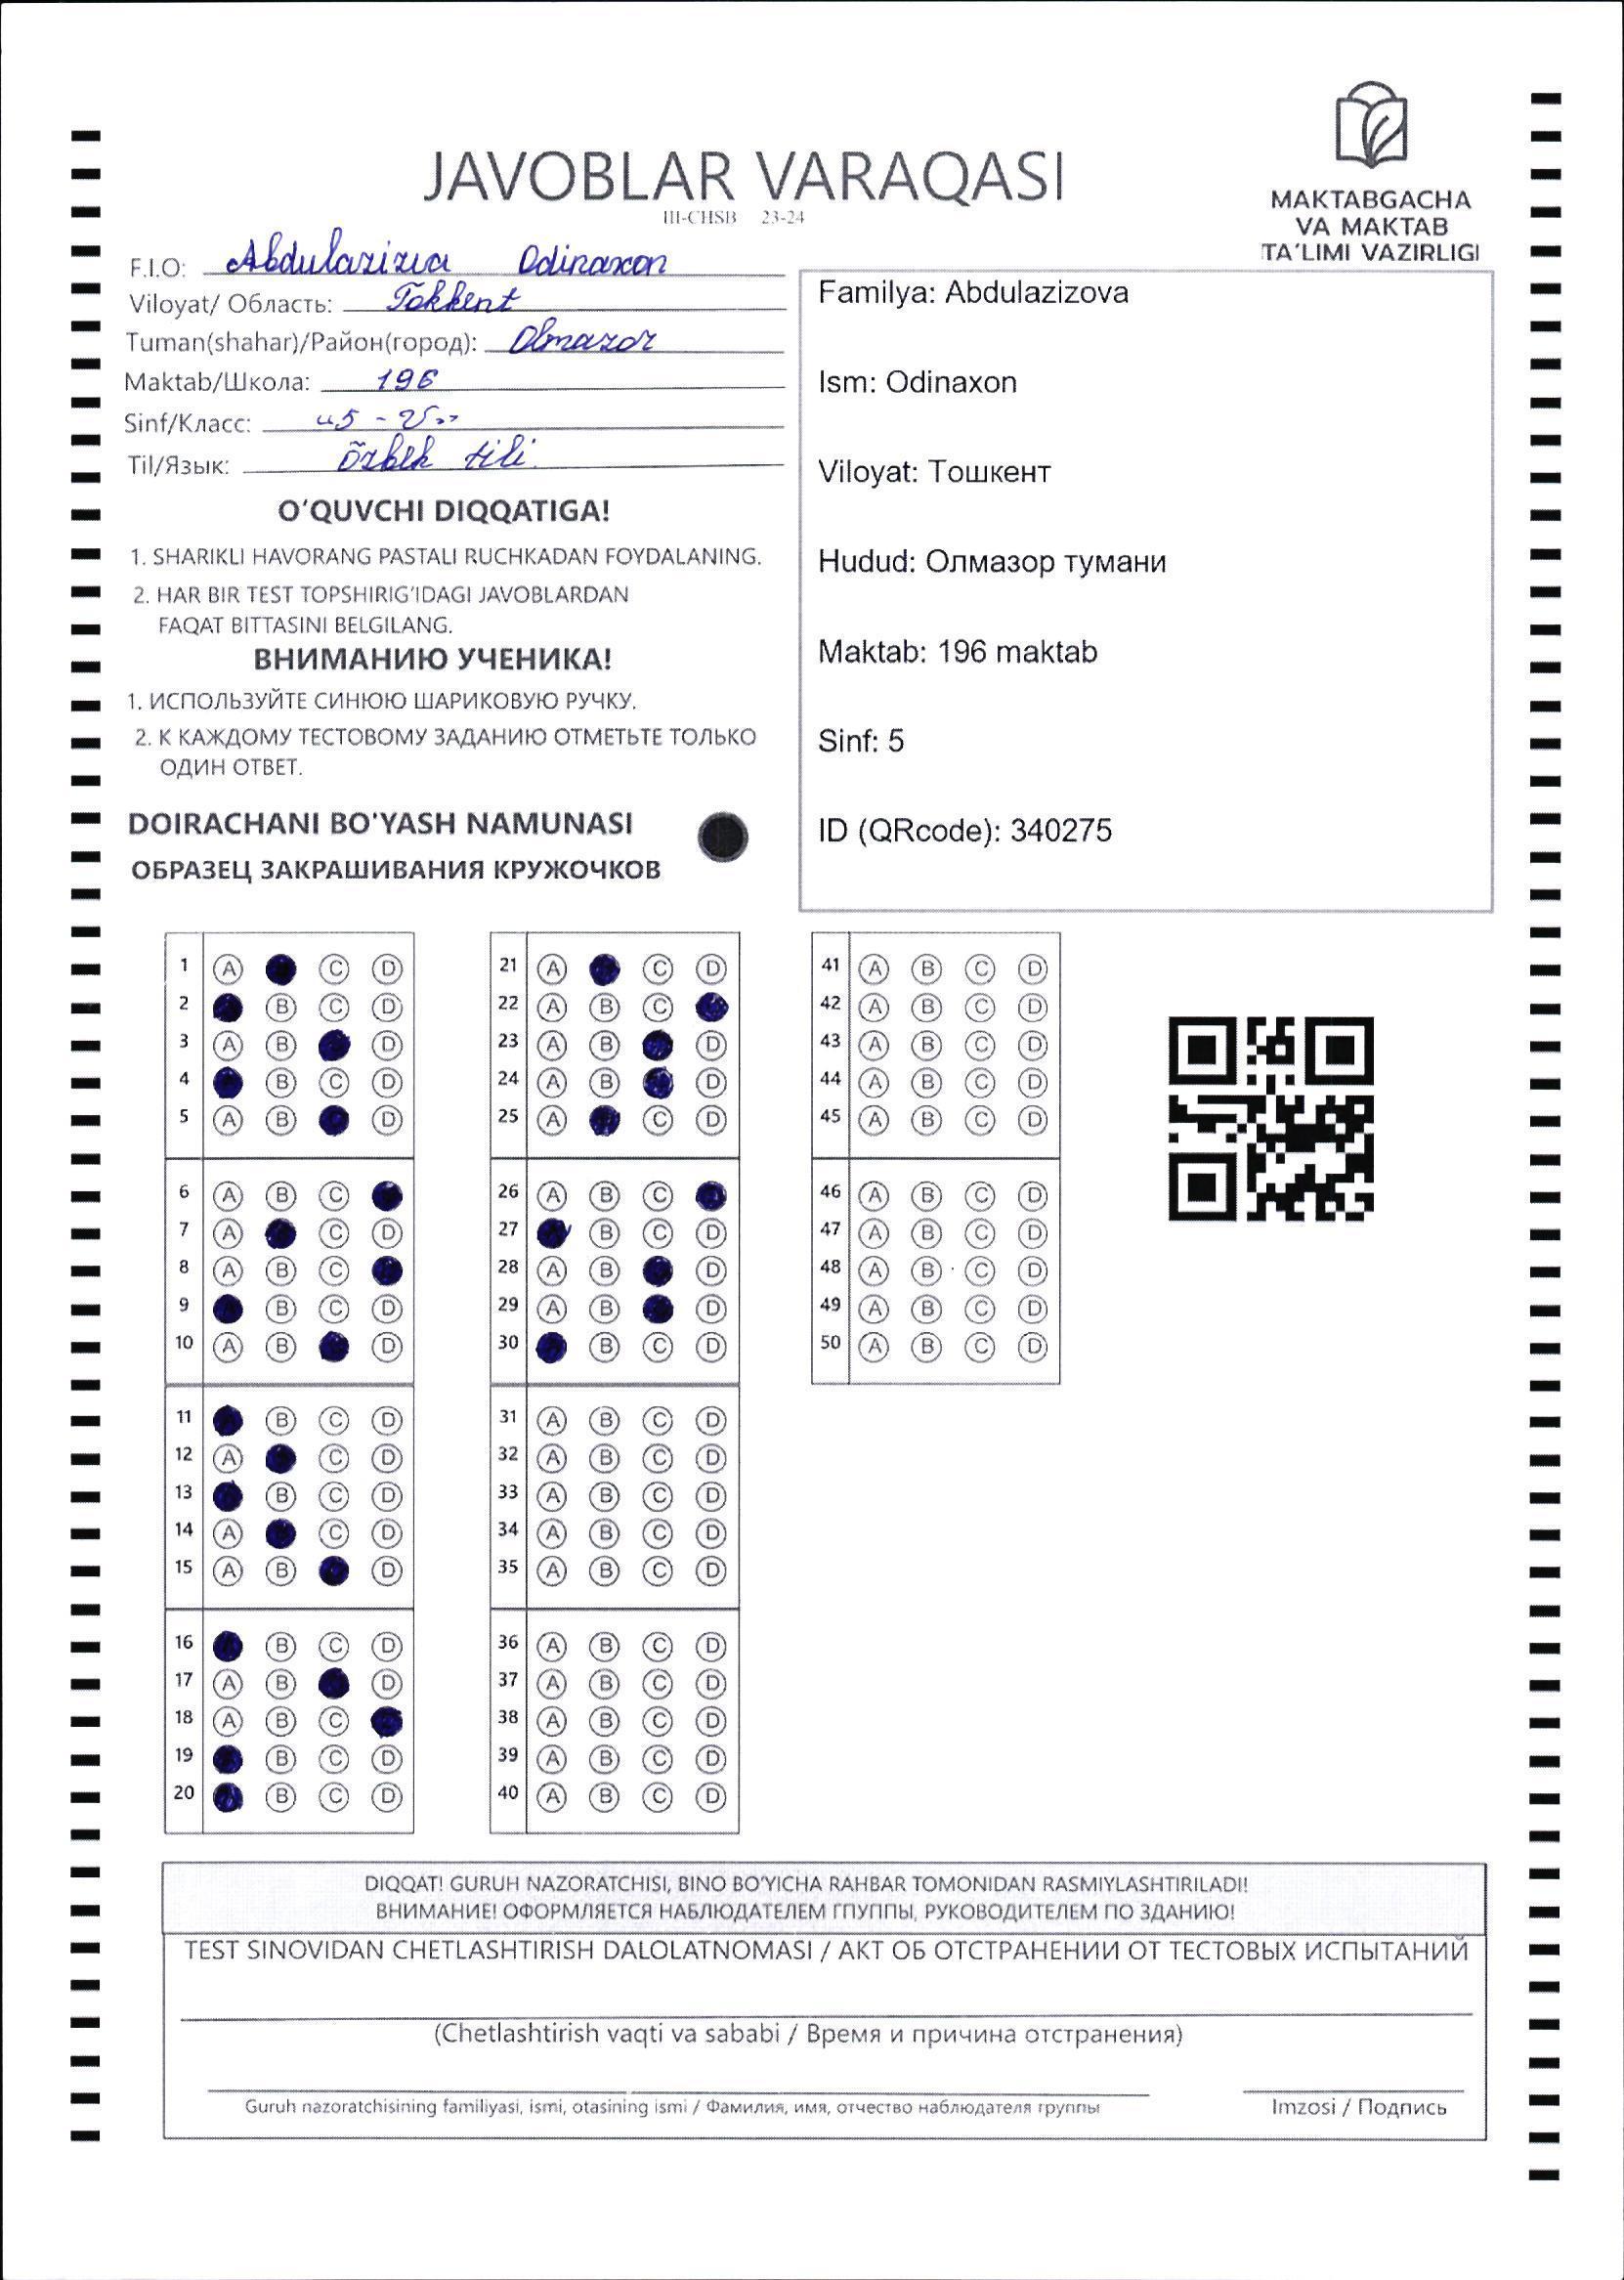 JAVOBLAR VARAQASI
III-CHSB 23-24
MAKTABGACHA
VA MAKTAB
TA'LIMI VAZIRLIGI
F.I.O: Abdulazizva Odinaxon
Viloyat/ Область: Tokkent
Tuman(shahar)/Район(город): Olmazor
Maktab/Школа: 196
Sinf/Класс: "5 -
Til/Язык: õzbek tili.
O'QUVCHI DIQQATIGA!
1. SHARIKLI HAVORANG PASTALI RUCHKADAN FOYDALANING.
2. HAR BIR TEST TOPSHIRIG'IDAGI JAVOBLARDAN
FAQAT BITTASINI BELGILANG.
ВНИМАНИЮ УЧЕНИКА!
1. ИСПОЛЬЗУЙТЕ СИНЮЮ ШАРИКОВУЮ РУЧКУ.
2. К КАЖДОМУ ТЕСТОВОМУ ЗАДАНИЮ ОТМЕТЬТЕ ТОЛЬКО
ОДИН ОТВЕТ.
DOIRACHANI BO'YASH NAMUNASI
ОБРАЗЕЦ ЗАКРАШИВАНИЯ КРУЖОЧКОВ
Familya: Abdulazizova
Ism: Odinaxon
Viloyat: Тошкент
Hudud: Олмазор тумани
Maktab: 196 maktab
Sinf: 5
ID (QRcode): 340275
1 A C D
2 B C D
3 A B D
4 B C D
5 A B D
6 A B C
7 A C D
8 A B C
9 B C D
10 A B D
11 B C D
12 A C D
13 B C D
14 A C D
15 A B D
16 B C D
17 A B D
18 A B C
19 B C D
20 B C D
21 A C D
22 A B C
23 A B D
24 A B D
25 A C D
26 A B C
27 B C D
28 A B D
29 A B D
30 B C D
31 A B C D
32 A B C D
33 A B C D
34 A B C D
35 A B C D
36 A B C D
37 A B C D
38 A B C D
39 A B C D
40 A B C D
41 A B C D
42 A B C D
43 A B C D
44 A B C D
45 A B C D
46 A B C D
47 A B C D
48 A B C D
49 A B C D
50 A B C D
DIQQAT! GURUH NAZORATCHISI, BINO BO'YICHA RAHBAR TOMONIDAN RASMIYLASHTIRILADI!
ВНИМАНИЕ! ОФОРМЛЯЕТСЯ НАБЛЮДАТЕЛЕМ ГПУППЫ, РУКОВОДИТЕЛЕМ ПО ЗДАНИЮ!
TEST SINOVIDAN CHETLASHTIRISH DALOLATNOMASI / АКТ ОБ ОТСТРАНЕНИИ ОТ ТЕСТОВЫХ ИСПЫТАНИЙ
(Chetlashtirish vaqti va sababi / Время и причина отстранения)
Guruh nazoratchisining familiyasi, ismi, otasining ismi / Фамилия, имя, отчество наблюдателя группы
Imzosi / Подпись